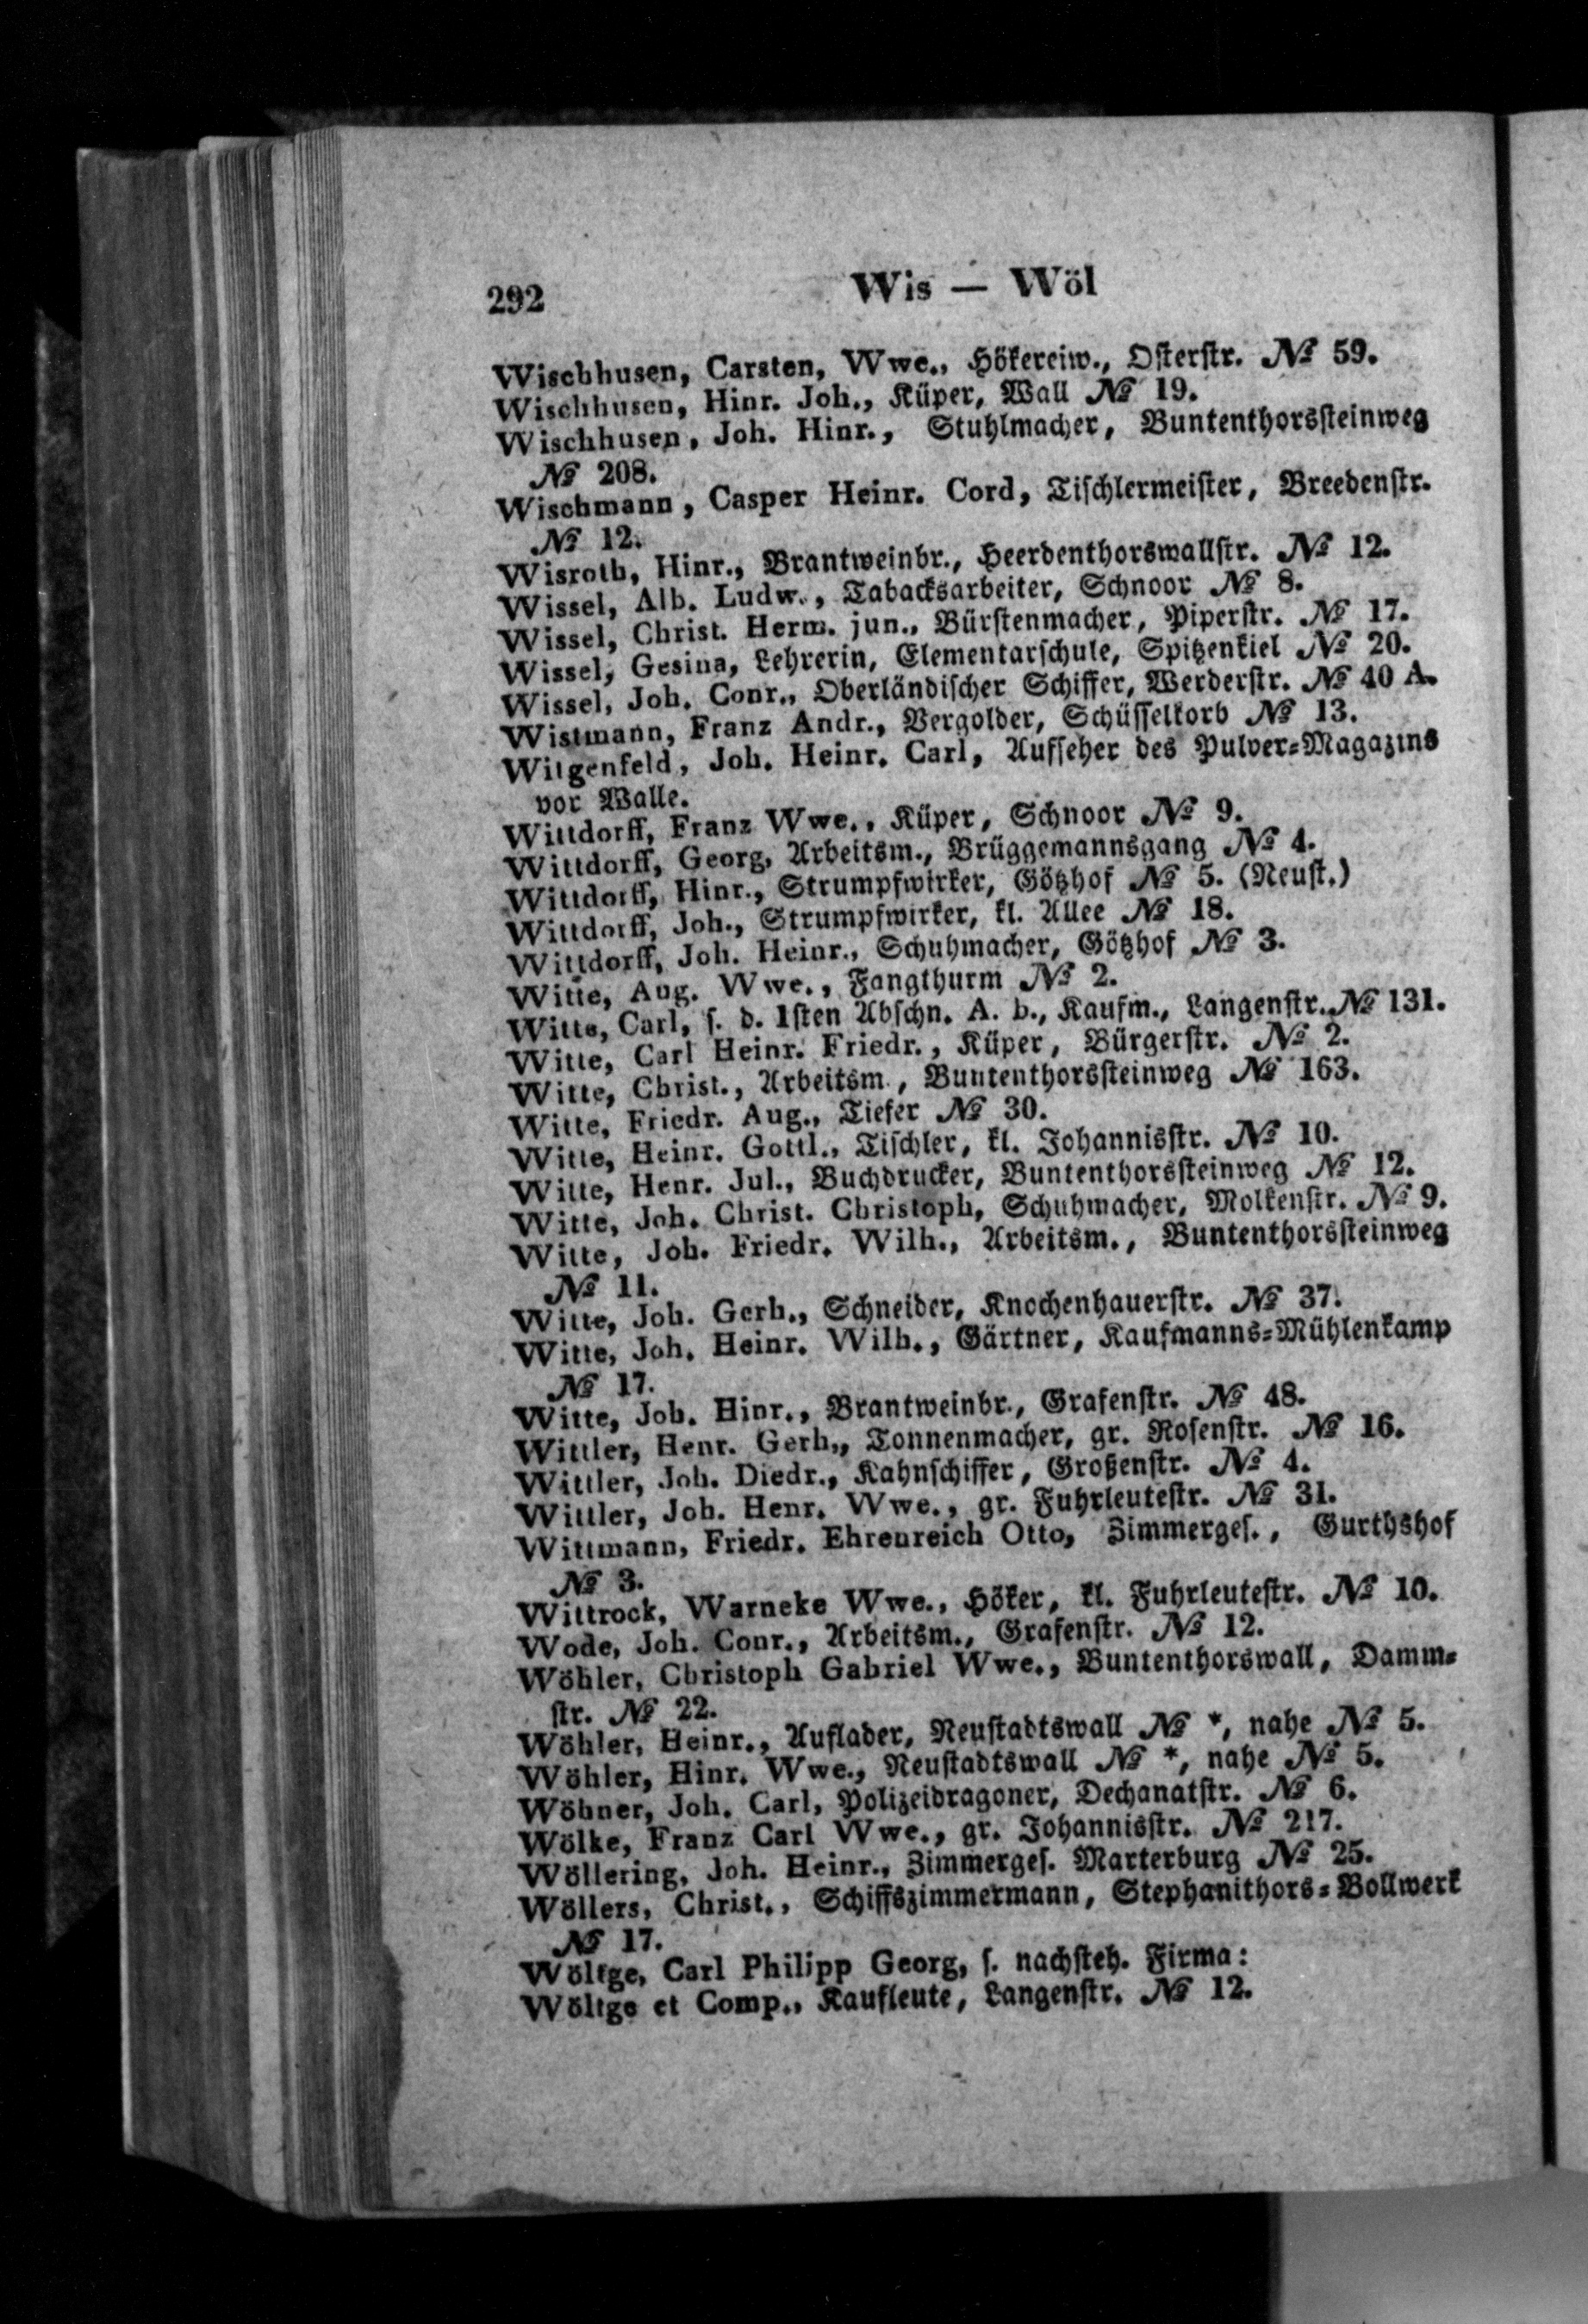 292
Wis — Wöl
Wischhusen, Carsten, Wwe., Hökereiw., Osterstr. № 59.
Wischhusen, Hinr. Joh., Küper, Wall № 19.
Wischhusen, Joh. Hinr., Stuhlmacher, Buntenthorssteinweg
№ 208.
Wischmann, Casper Heinr. Cord, Tischlermeister, Breedenstr.
№ 12.
Wisroth, Hinr., Brantweinbr., Heerdenthorswallstr. № 12.
Wissel, Alb. Ludw., Tabacksarbeiter, Schnoor № 8.
Wissel, Christ. Herm. jun., Bürstenmacher, Piperstr. № 17.
Wissel, Gesina, Lehrerin, Elementarschule, Spitzenkiel № 20.
Wissel, Joh. Conr., Oberländischer Schiffer, Werderstr. № 40 A.
Wistmann, Franz Andr., Vergolder, Schüsselkorb № 13.
Witgenfeld, Joh. Heinr. Carl, Aufseher des Pulver-Magazins
vor Walle.
Wittdorff, Franz Wwe., Küper, Schnoor № 9.
Wittdorff, Georg, Arbeitsm., Brüggemannsgang № 4.
Wittdorff, Hinr., Strumpfwirker, Götzhof № 5. (Neust.)
Wittdorff, Joh., Strumpfwirker, kl. Allee № 18.
Wittdorff, Joh. Heinr., Schuhmacher, Götzhof № 3.
Witte, Aug. Wwe., Fangthurm № 2.
Witte, Carl, s. d. 1sten Abschn. A. b., Kaufm., Langenstr. № 131.
Witte, Carl Heinr. Friedr., Küper, Bürgerstr. № 2.
Witte, Christ., Arbeitsm., Buntenthorssteinweg № 163.
Witte, Friedr. Aug., Tiefer № 30.
Witte, Heinr. Gottl., Tischler, kl. Johannisstr. № 10.
Witte, Henr. Jul., Buchdrucker, Buntenthorssteinweg № 12.
Witte, Joh. Christ. Christoph, Schuhmacher, Molkenstr. № 9.
Witte, Joh. Friedr. Wilh., Arbeitsm., Buntenthorssteinweg
№ 11.
Witte, Joh. Gerh., Schneider, Knochenhauerstr. № 37.
Witte, Joh. Heinr. Wilh., Gärtner, Kaufmanns-Mühlenkamp
№ 17.
Witte, Joh. Hinr., Brantweinbr., Grafenstr. № 48.
Wittler, Henr. Gerh., Tonnenmacher, gr. Rosenstr. № 16.
Wittler, Joh. Diedr., Kahnschiffer, Großenstr. № 4.
Wittler, Joh. Henr. Wwe., gr. Fuhrleutestr. № 31.
Wittmann, Friedr. Ehrenreich Otto, Zimmerges., Gurthshof
№ 3.
Wittrock, Warneke Wwe., Höker, kl. Fuhrleutestr. № 10.
Wode, Joh. Conr., Arbeitsm., Grafenstr. № 12.
Wöhler, Christoph Gabriel Wwe., Buntenthorswall, Damm-
str. № 22.
Wöhler, Heinr., Auflader, Neustadtswall № *, nahe № 5.
Wöhler, Hinr. Wwe., Neustadtswall № *, nahe № 5.
Wöhner, Joh. Carl, Polizeidragoner, Dechanatstr. № 6.
Wölke, Franz Carl Wwe., gr. Johannisstr. № 217.
Wöllering, Joh. Heinr., Zimmerges. Marterburg № 25.
Wöllers, Christ., Schiffszimmermann, Stephanithors-Bollwerk
№ 17.
Wöltge, Carl Philipp Georg, s. nachsteh. Firma:
Wöltge et Comp., Kaufleute, Langenstr. № 12.